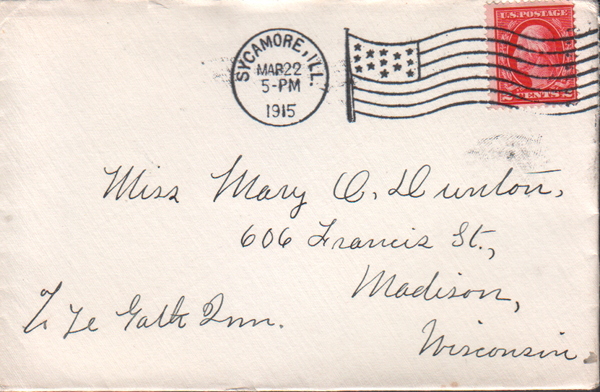 SYCAMORE, ILL.
MAR 22
5-PM
1915
U.S. POSTAGE
2 CENTS 2
Miss Mary O. Dunton,
606 Francis St.,
Madison,
Wisconsin.
℅ Ye Gath Inn.